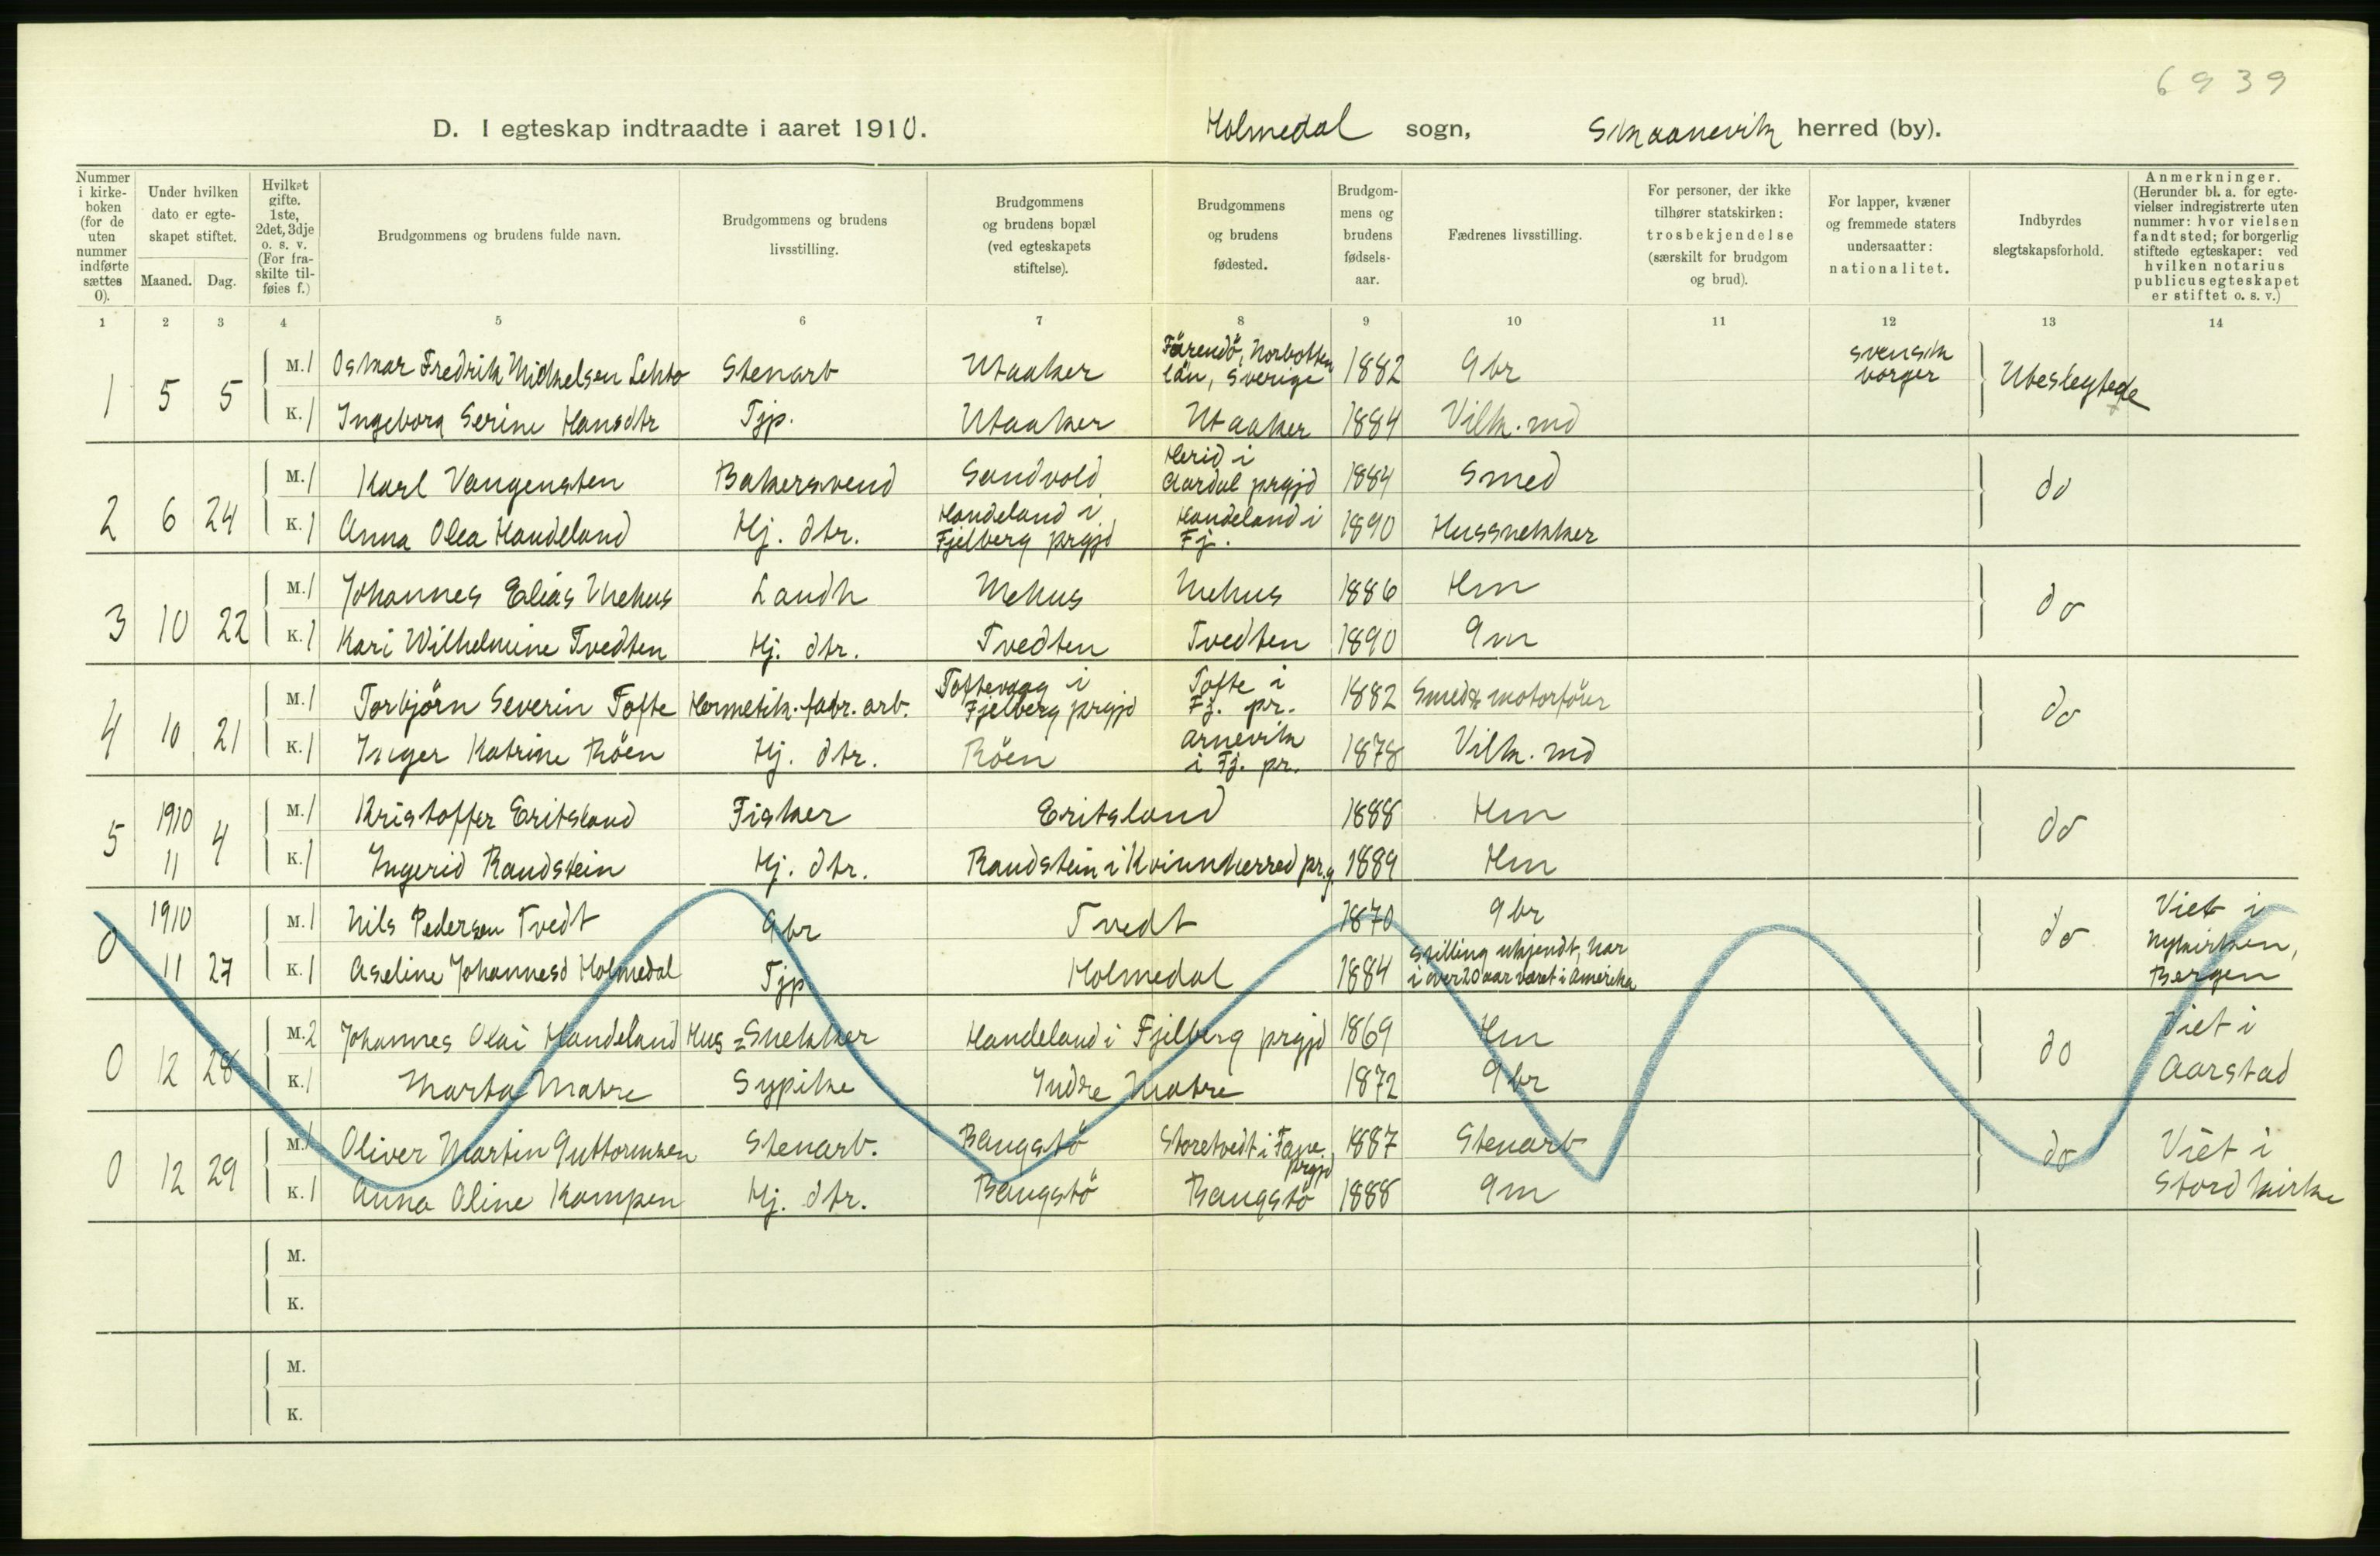 6939
D. I egteskap indtraadte i aaret 1910. Holmedal sogn, Skaanevik herred (by).
Nummer i kirke-boken (for de uten nummer indførte sættes 0).
Under hvilken dato er egte-skapet stiftet.
Maaned. Dag.
Hvilket gifte. 1ste, 2det, 3dje o. s. v. (For fra-skilte til-føies f.)
Brudgommens og brudens fulde navn.
Brudgommens og brudens livsstilling.
Brudgommens og brudens bopæl (ved egteskapets stiftelse).
Brudgommens og brudens fødested.
Brudgom-mens og brudens fødsels-aar.
Fædrenes livsstilling.
For personer, der ikke tilhører statskirken: trosbekjendelse (særskilt for brudgom og brud).
For lapper, kvæner og fremmede staters undersaatter: nationalitet.
Indbyrdes slegtskapsforhold.
Anmerkninger. (Herunder bl. a. for egte-vielser indregistrerte uten nummer: hvor vielsen fandt sted; for borgerlig stiftede egteskaper: ved hvilken notarius publicus egteskapet er stiftet o. s. v.)
1 2 3 4 5 6 7 8 9 10 11 12 13 14
1 5 5 M. 1 Oskar Fredrik Mickelsen Lehto Stenarb Utaaker Färendö, Norbotten län, Sverige 1882 Gbr svensk borger Ubeslegtede
K. 1 Ingeborg Serine Hansdtr Tjp. Utaaker Utaaker 1884 Vilk. md
2 6 24 M. 1 Karl Vangensten Bakersvend Sandvold Herid i Aardal prgjd 1884 Smed do
K. 1 Anna Olea Handeland Hj. dtr. Handeland i Fjelberg prgjd Handeland i Fj. 1890 Hussnekker
3 10 22 M. 1 Johannes Elias Mehus Landh Mehus Mehus 1886 Hm do
K. 1 Kari Wilhelmine Tvedten Hj. dtr. Tvedten Tvedten 1890 Gm
4 10 21 M. 1 Torbjörn Severin Tofte Hermetik.fabr.arb. Toftevaag i Fjelberg prgjd Tofte i Fj. pr. 1882 Smed & motorförer do
K. 1 Inger Katrine Röen Hj. dtr. Röen Arnevik i Fj. pr. 1878 Vilk. md
5 1910 11 4 M. 1 Kristoffer Eritsland Fisker Eritsland 1888 Hm do
K. 1 Ingerid Raudstein Hj. dtr. Raudstein i Kvinnherred pr.g. 1889 Hm
0 1910 11 27 M. 1 Nils Pedersen Tvedt Gbr Tvedt 1870 Gbr do Viet i Nykirken, Bergen
K. 1 Aseline Johannesd Holmedal Tjp Holmedal 1884 Stilling ukjendt, har i over 20 aar været i Amerika
0 12 28 M. 2 Johannes Olai Handeland Hus=Snekker Handeland i Fjelberg prgjd 1869 Hm do Viet i Aarstad
K. 1 Marta Matre Sypike Indre Matre 1872 Gbr
0 12 29 M. 1 Oliver Martin Guttormsen Stenarb. Baugstö Storetvedt i Fane prgjd 1887 Stenarb do Viet i Stord kirke
K. 1 Anna Oline Kampen Hj. dtr. Baugstö Baugstö 1888 Gm
M.
K.
M.
K.